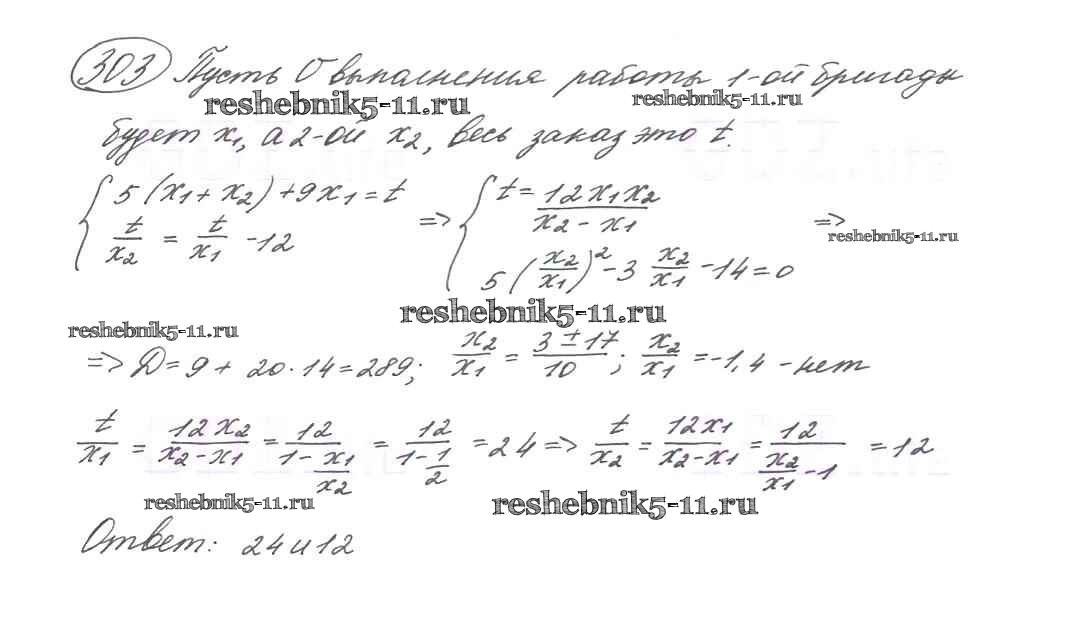 303 Пусть V выполнения работы 1-ой бригады
reshebnik5-11.ru reshebnik5-11.ru
будет x₁, а 2-ой x₂, весь заказ это t.
{ 5(x₁ + x₂) + 9x₁ = t => { t = 12x₁x₂ / (x₂ - x₁) =>
t/x₂ = t/x₁ - 12 5(x₂/x₁)² - 3 x₂/x₁ - 14 = 0
reshebnik5-11.ru
reshebnik5-11.ru
reshebnik5-11.ru
=> D = 9 + 20·14 = 289; x₂/x₁ = (3 ± 17)/10; x₂/x₁ = -1,4 - нет
t/x₁ = 12x₂/(x₂ - x₁) = 12/(1 - x₁/x₂) = 12/(1 - 1/2) = 24 => t/x₂ = 12x₁/(x₂ - x₁) = 12/(x₂/x₁ - 1) = 12
reshebnik5-11.ru reshebnik5-11.ru
Ответ: 24 и 12